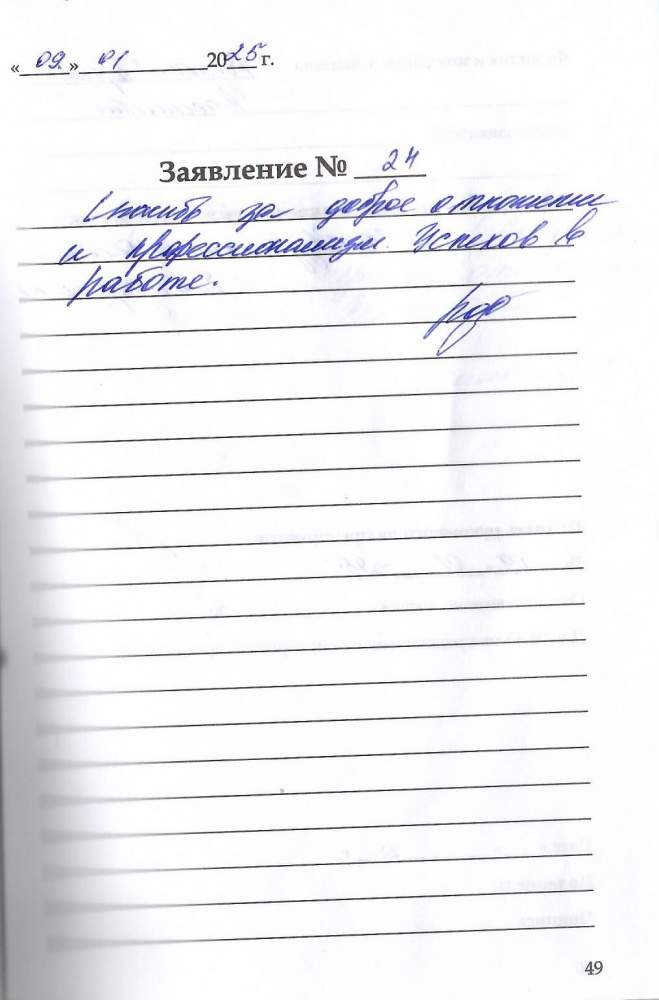 «09» 01 2025 г.
Заявление № 24
Спасибо за доброе отношение
и профессионализм. Успехов в
работе.
49